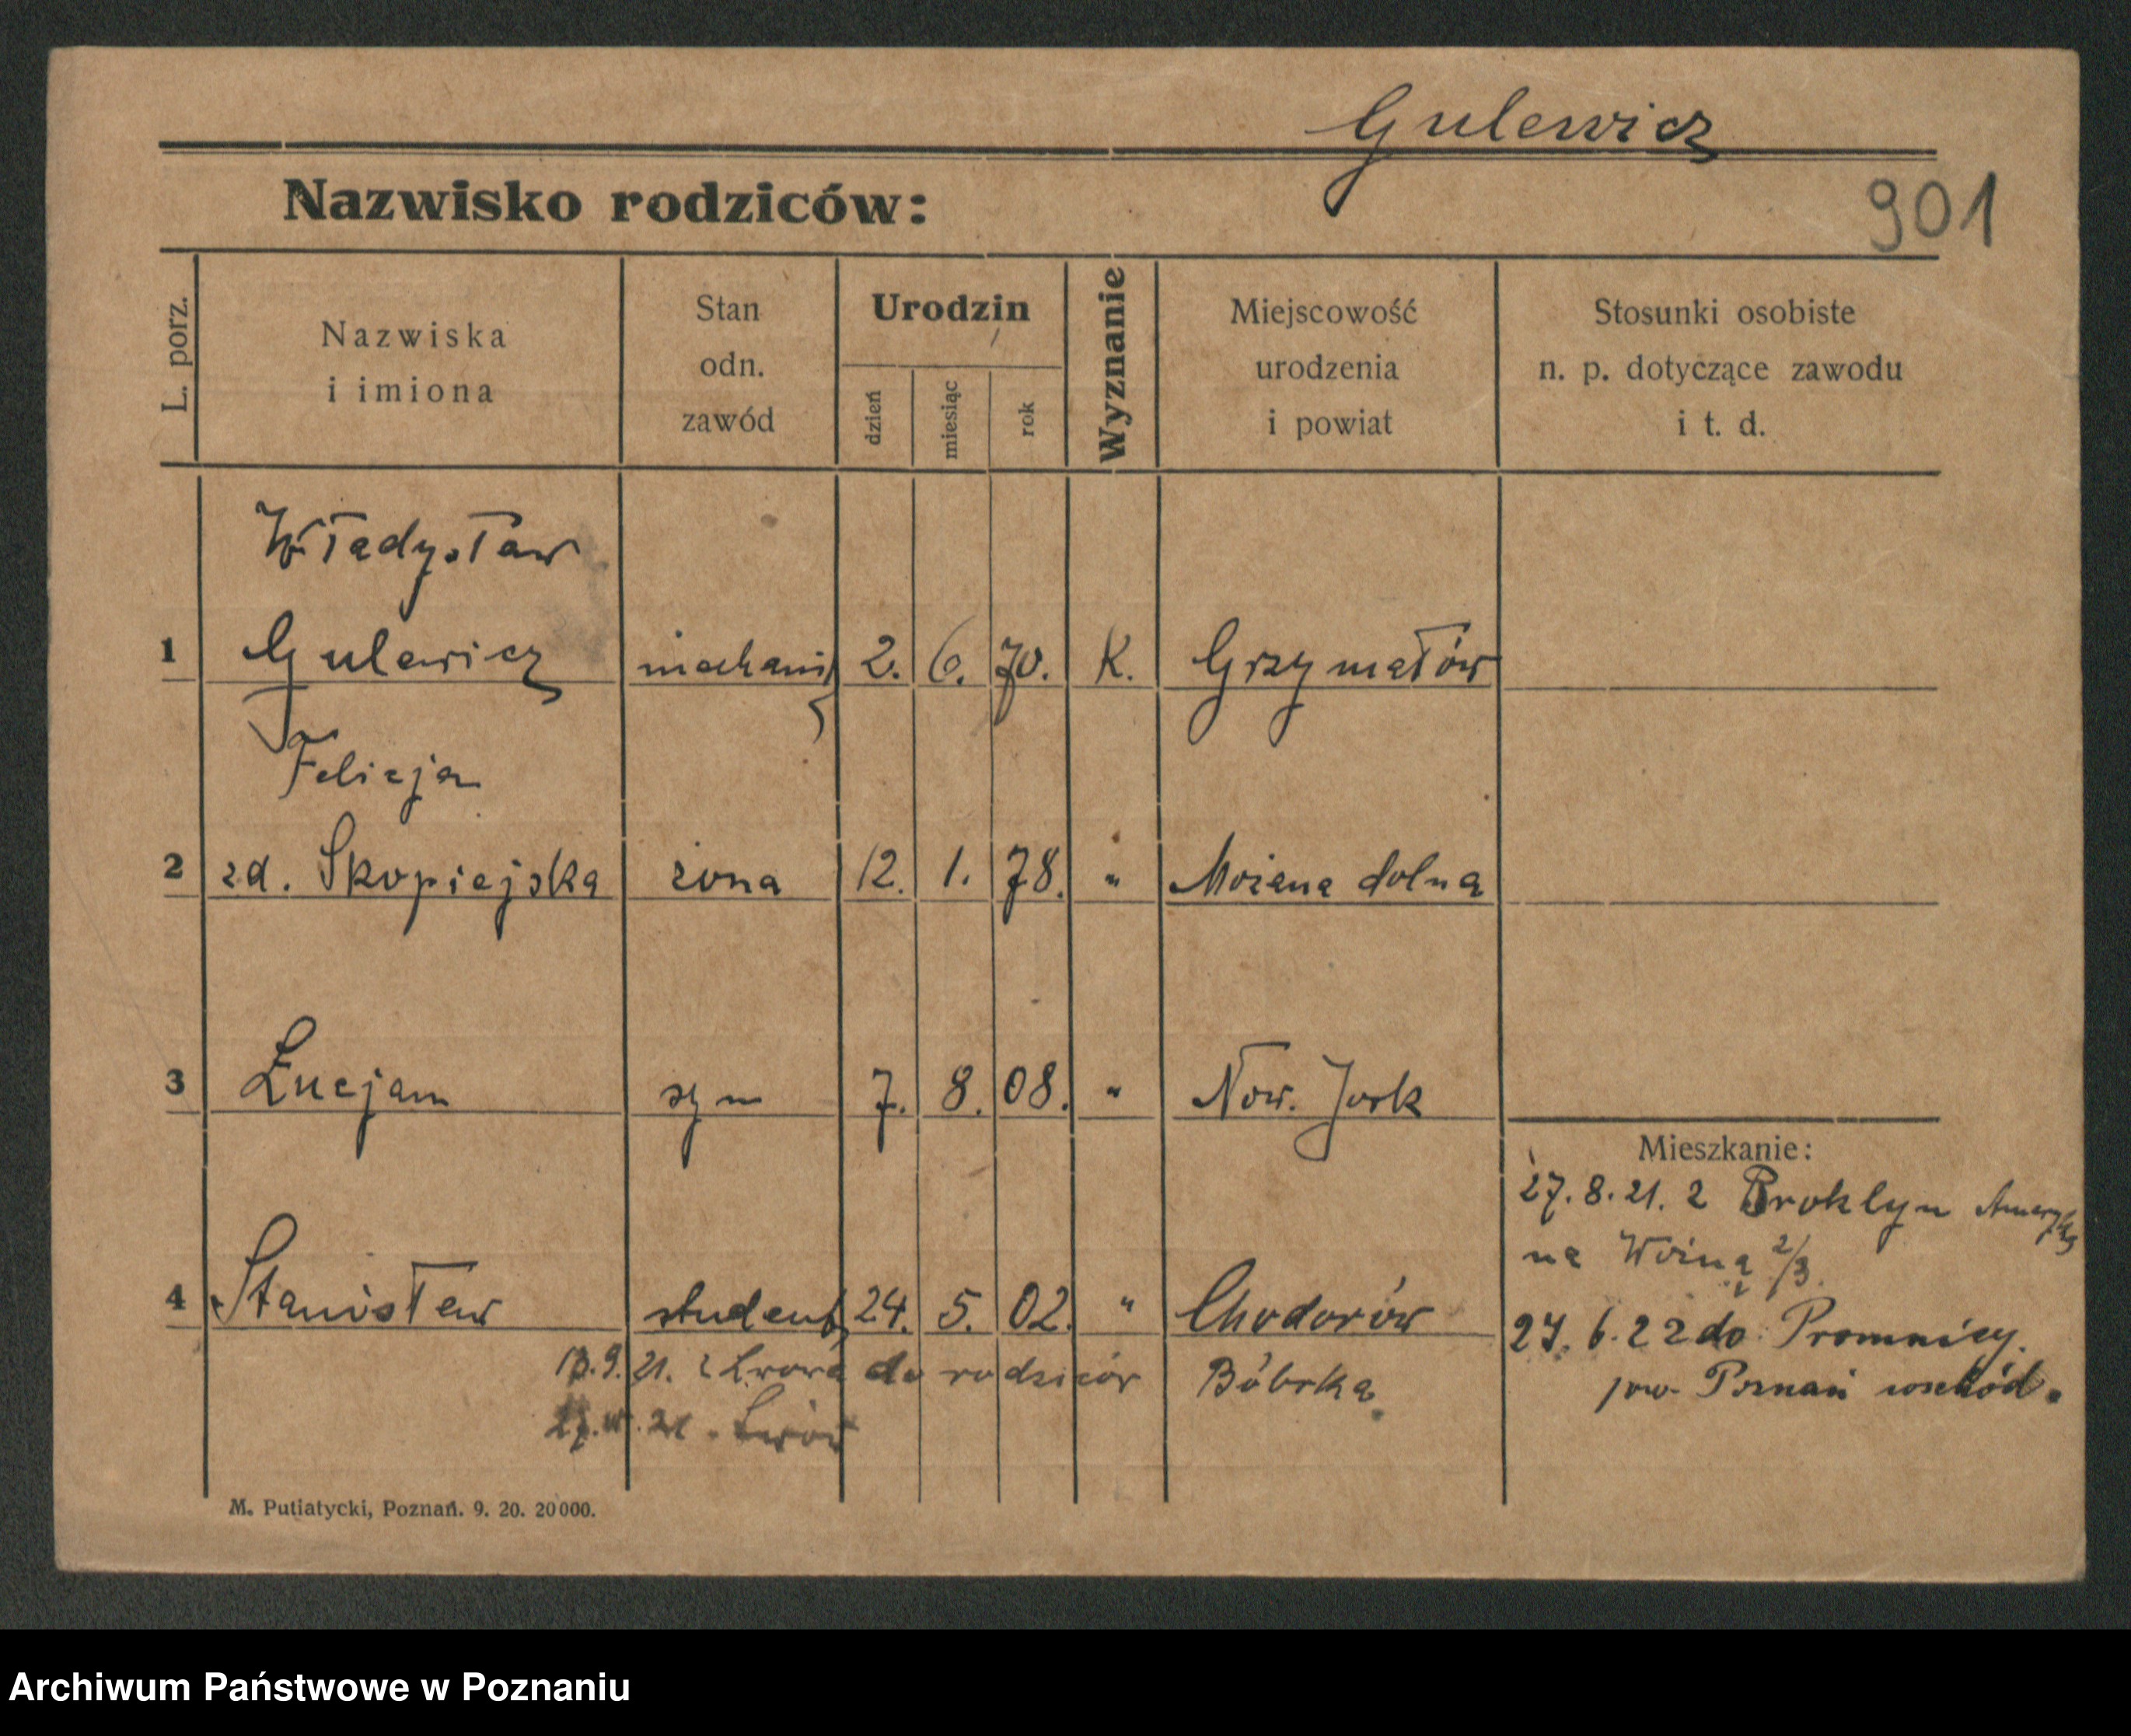 Gulewicz
Nazwisko rodziców:
901
L. porz.
Nazwiska
i imiona
Stan
odn.
zawód
Urodzin
dzień
miesiąc
rok
Wyznanie
Miejscowość
urodzenia
i powiat
Stosunki osobiste
n. p. dotyczące zawodu
i t. d.
Władysław
1 Gulewicz mechanik 2. 6. 70. K. Grzymałów
Felicja
2 zd. Skopiejska żona 12. 1. 78. " dolna
3 Łucjan syn 7. 8. 08. " Now. Jork
Mieszkanie:
27. 8. 21. z Broklyn
na 2/3.
4 Stanisław student 24. 5. 02. " Chodorów
27. 6. 22 do Promnicy.
13. 9. 21. z Lwowa do rodziców Bóbrka
pow. Poznań wschód.
Lwów
M. Putiatycki, Poznań. 9. 20. 20000.
Archiwum Państwowe w Poznaniu